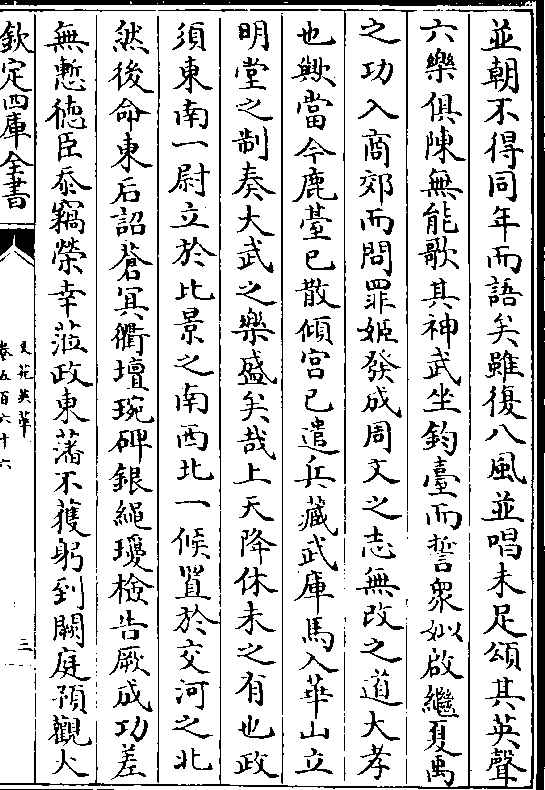 並朝不得同年而語矣雖復八風並唱未足頌其英聲
六樂俱陳無能歌其神武坐鈞臺而誓衆姒啟繼夏禹
之功入商郊而問罪姬發成周文之志無改之道大孝
也歟當今鹿臺已散傾宫已遣兵藏武庫馬入華山立
明堂之制奏大武之樂盛矣哉上天降休未之有也政
須東南一尉立於比景之南西北一候置於交河之北
然後命東后詔蒼冥衢壇琬碑銀繩瓊檢告厥成功差
無慙徳臣忝竊榮幸蒞政東藩不獲躬到闕庭預觀大
欽定四庫全書
文苑英華
卷五百六十六
三